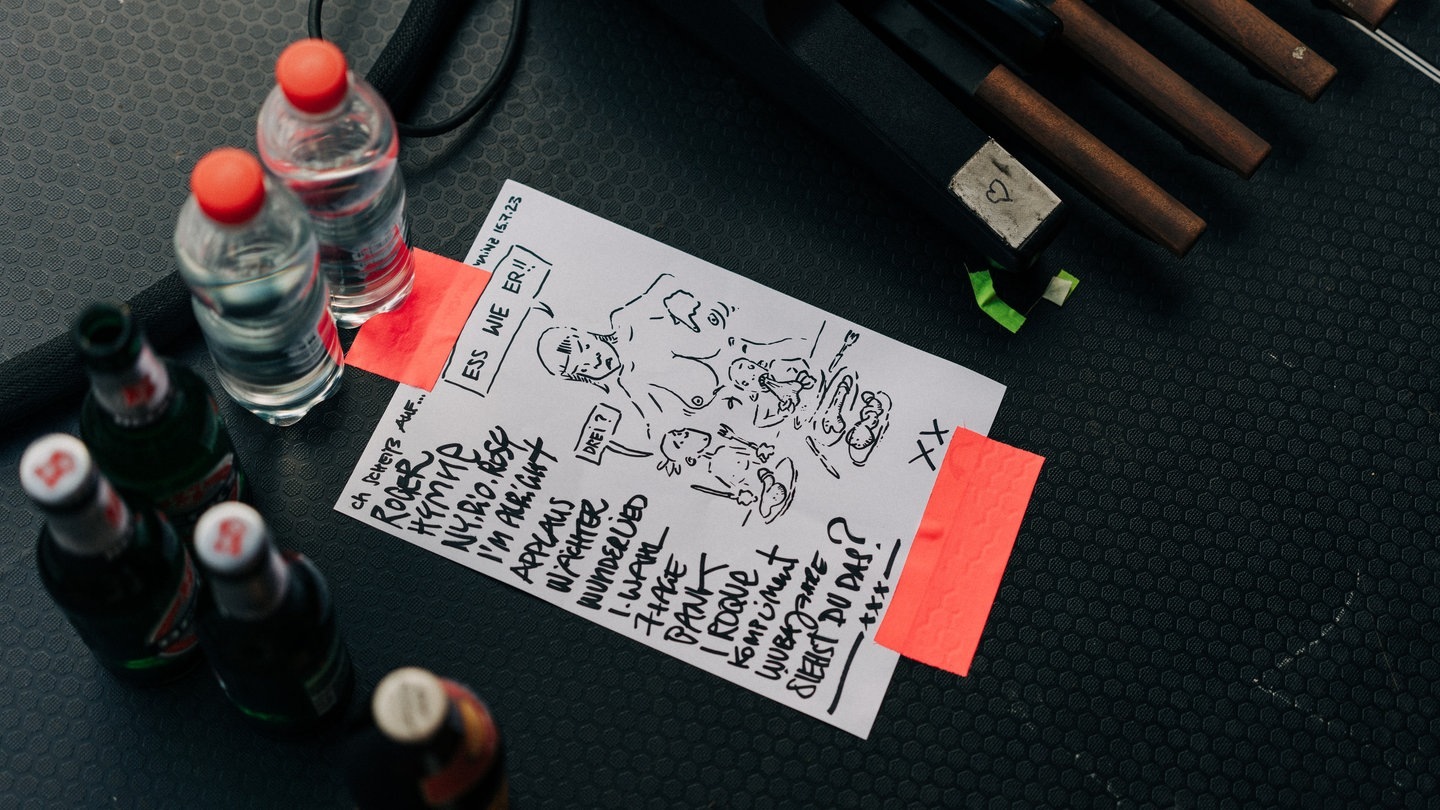 15.7.23
ESS WIE ER!!
DREI?
ch SCHEISS AUF...
ROGER
HYMNE
NY.RiO.ROSY
I'M ALRIGHT
APPLAUS
WÄCHTER
WUNDERLIED
1. WAHL
7 TAGE
DANK
1 ROQUE
KOMPLIMENT
SIEHST DU DAS?
XXX
XX